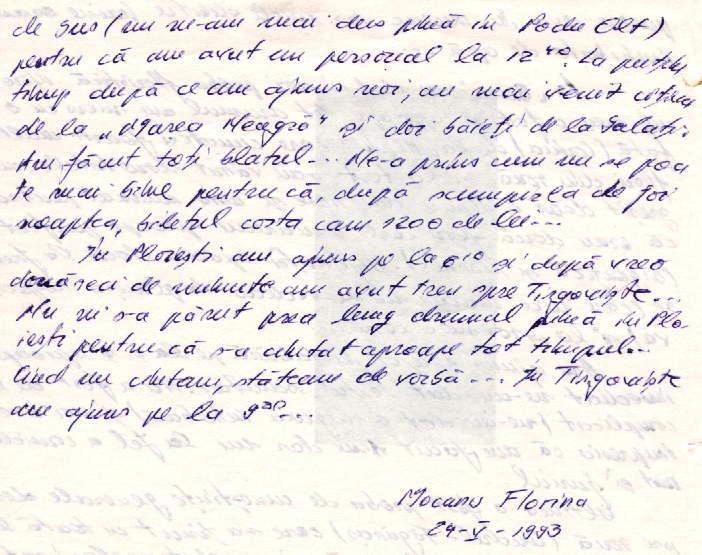 de sus (nu ne-am mai dus până în Podu Olt)
pentru că am avut un personal la 12⁴⁰. La puțin
timp după ce am ajuns noi, au mai venit câțiva
de la „Marea Neagră" și doi băieți de la Galați.
Am făcut toți blatul... Ne-a prins cum nu se poa
te mai bine pentru că, după scumpirea de joi
noaptea, biletul costa cam 1200 de lei...
În Ploiești am ajuns pe la 6¹⁰ și după vreo
douăzeci de minute am avut tren spre Tîrgoviște...
Nu ni s-a părut prea lung drumul până în Plo-
iești pentru că s-a cântat aproape tot timpul...
Când nu cântam, stăteam de vorbă... În Tîrgoviște
am ajuns pe la 9³⁰...
Mocanu Florina
24-V-1993